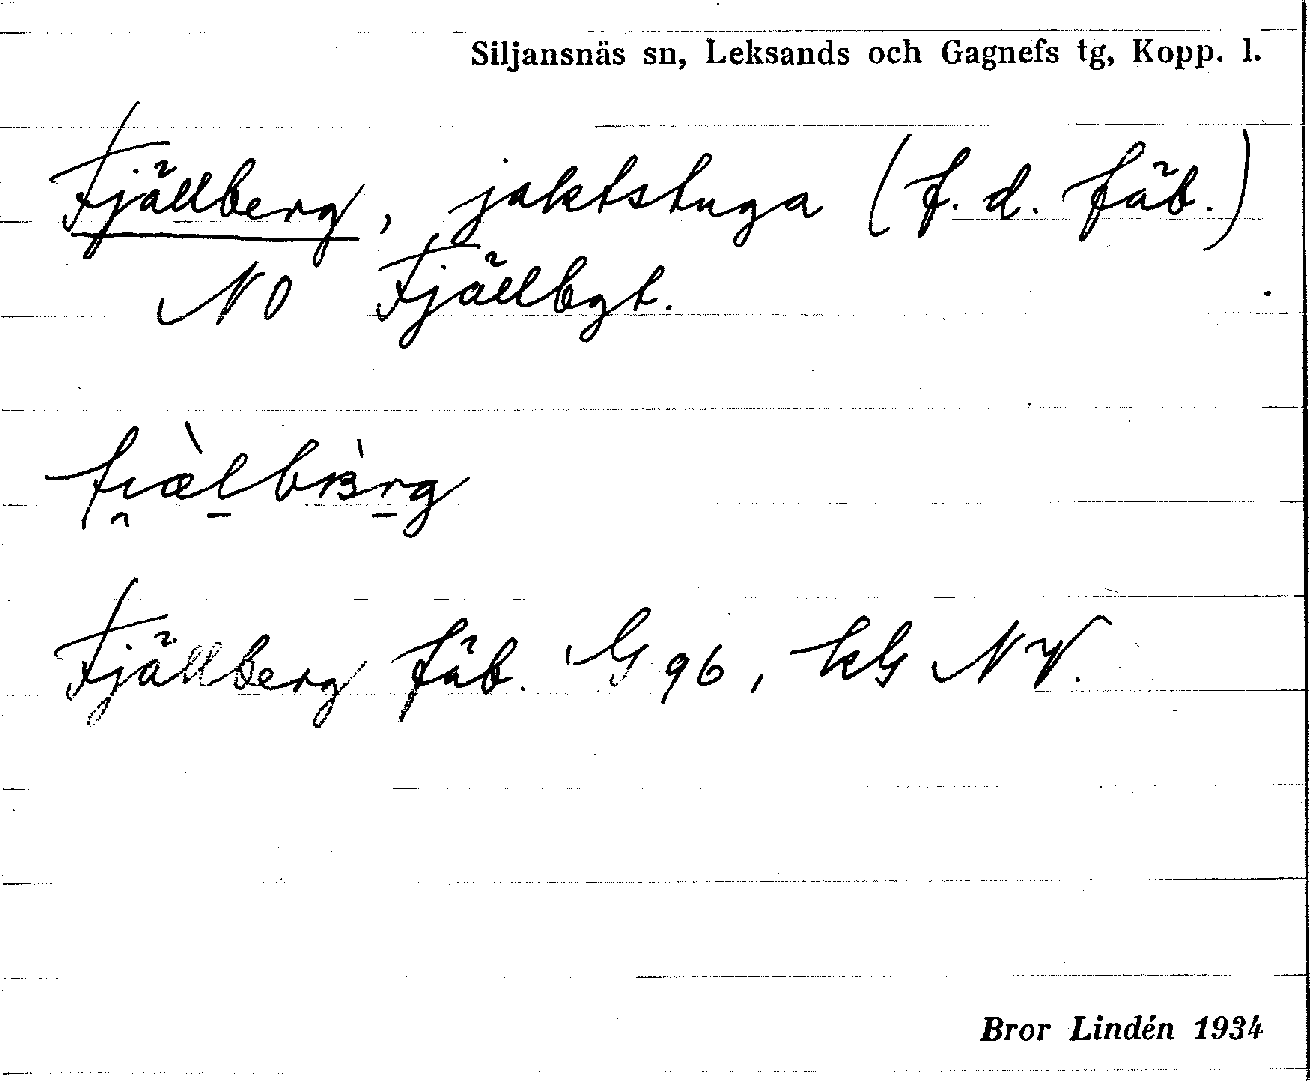 Siljansnäs sn, Leksands och Gagnefs tg, Kopp. l.
Fjällberg, jaktstuga (f. d. fäb.)
NO Fjällbgt.
Fjällberg fäb. G 96, kG NV.
Bror Lindén 1934